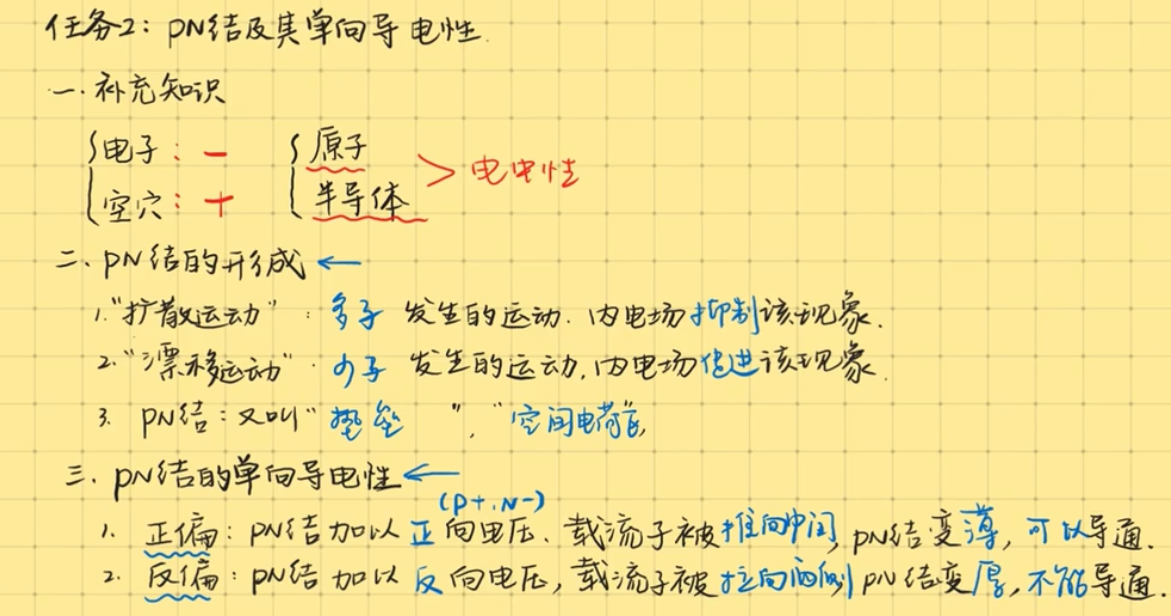 任务2：PN结及其单向导电性.
一.补充知识
{电子：− {原子 > 电中性
空穴：+ 半导体
二、PN结的形成 ←
1."扩散运动"：多子 发生的运动.内电场抑制该现象.
2."漂移运动"：少子 发生的运动,内电场促进该现象.
3. PN结：又叫"势垒 "，"空间电荷区"
三、PN结的单向导电性 ←
(P+.N-)
1. 正偏：PN结加以正向电压、载流子被推向中间,PN结变薄,可以导通.
2. 反偏：PN结加以反向电压,载流子被拉向两侧 PN结变厚,不能导通.